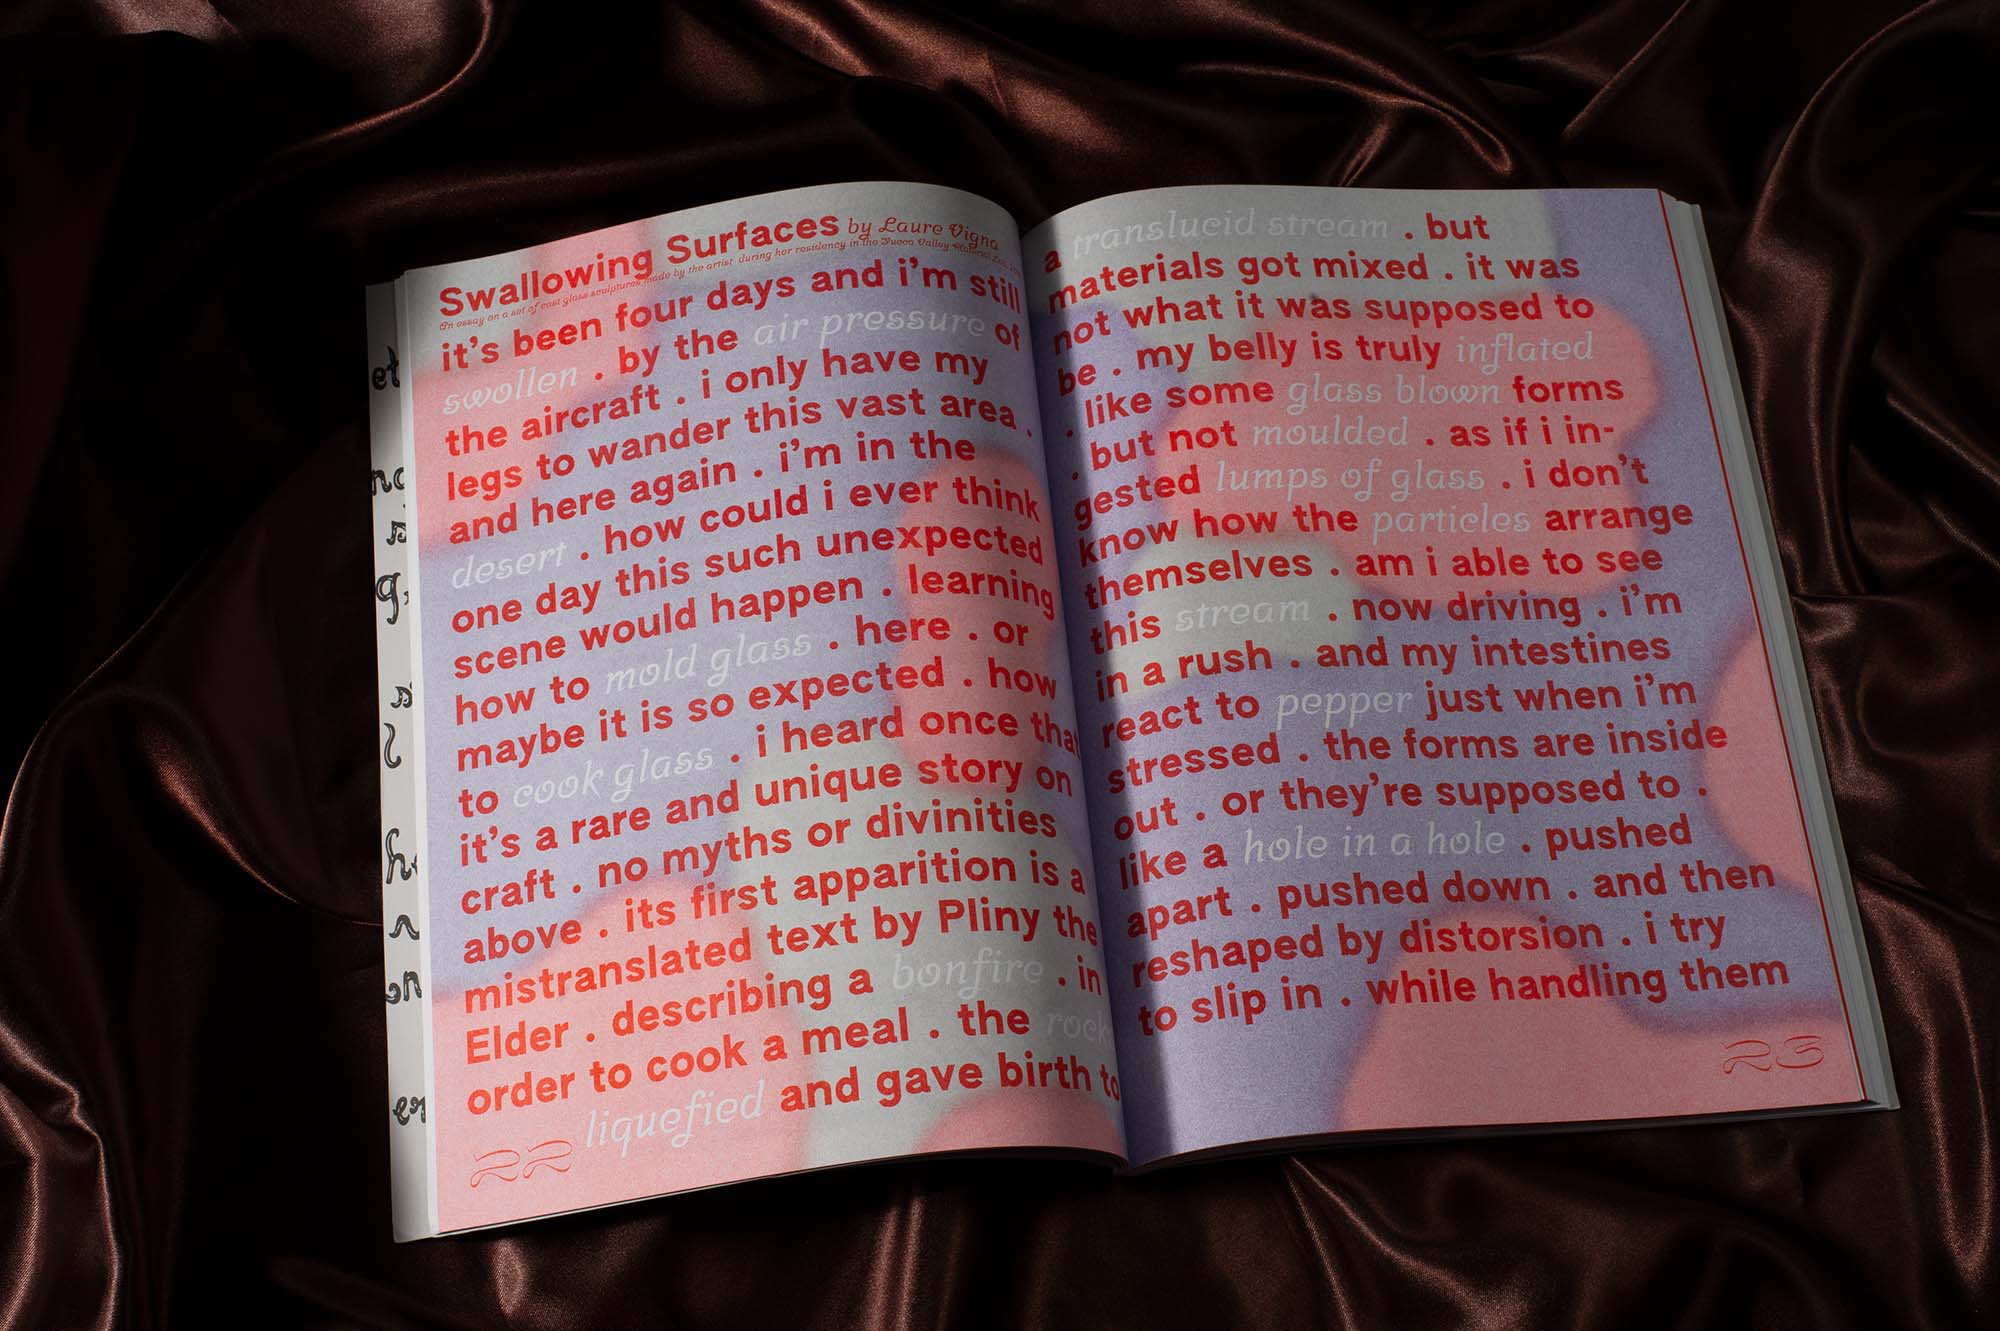 Swallowing Surfaces by Laure Vigna
An essay on a set of cast glass sculptures made by the artist during her residency in the Yucca Valley Material Lab
it's been four days and i'm still
swollen . by the air pressure of
the aircraft . i only have my
legs to wander this vast area .
and here again . i'm in the
desert . how could i ever think
one day this such unexpected
scene would happen . learning
how to mold glass . here . or
maybe it is so expected . how
to cook glass . i heard once that
it's a rare and unique story on
craft . no myths or divinities
above . its first apparition is a
mistranslated text by Pliny the
Elder . describing a bonfire . in
order to cook a meal . the rocks
liquefied and gave birth to
22
a translucid stream . but
materials got mixed . it was
not what it was supposed to
be . my belly is truly inflated
. like some glass blown forms
. but not moulded . as if i in-
gested lumps of glass . i don't
know how the particles arrange
themselves . am i able to see
this stream . now driving . i'm
in a rush . and my intestines
react to pepper just when i'm
stressed . the forms are inside
out . or they're supposed to .
like a hole in a hole . pushed
apart . pushed down . and then
reshaped by distorsion . i try
to slip in . while handling them
23